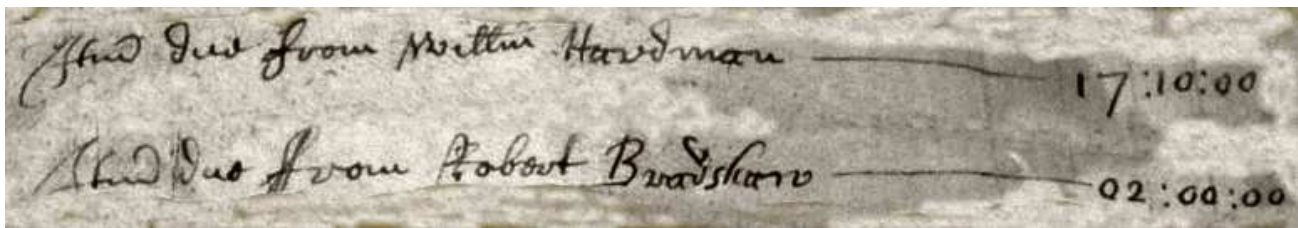 Itm̃ due from Willm Hardman — 17:10:00
Itm̃ due from Robert Bradshaw — 02:00:00